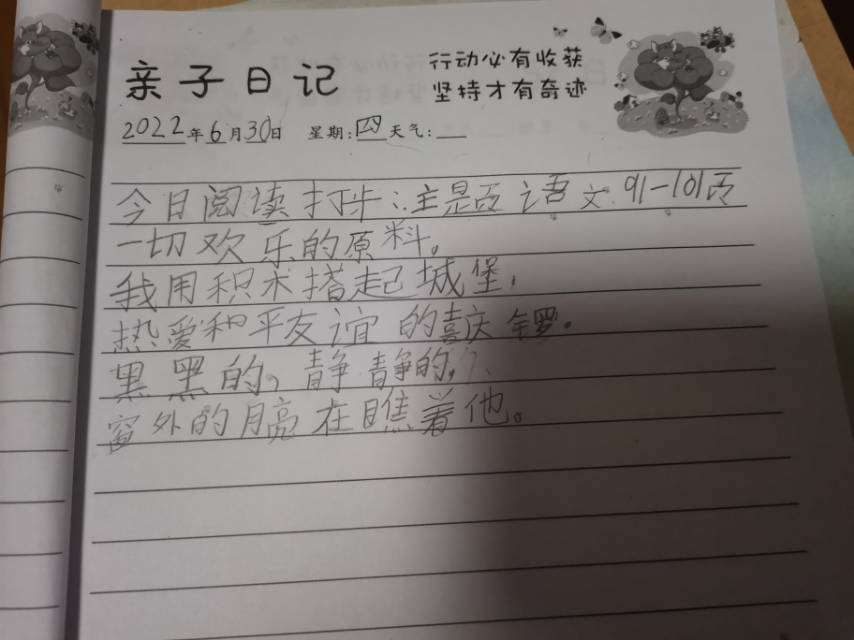 亲子日记
行动必有收获
坚持才有奇迹
2022年6月30日 星期:四 天气:
今日阅读打卡:主题语文 91-101页
一切欢乐的原料。
我用积木搭起城堡,
热爱和平友谊的喜庆锣。
黑黑的,静静的,
窗外的月亮在瞧着他。